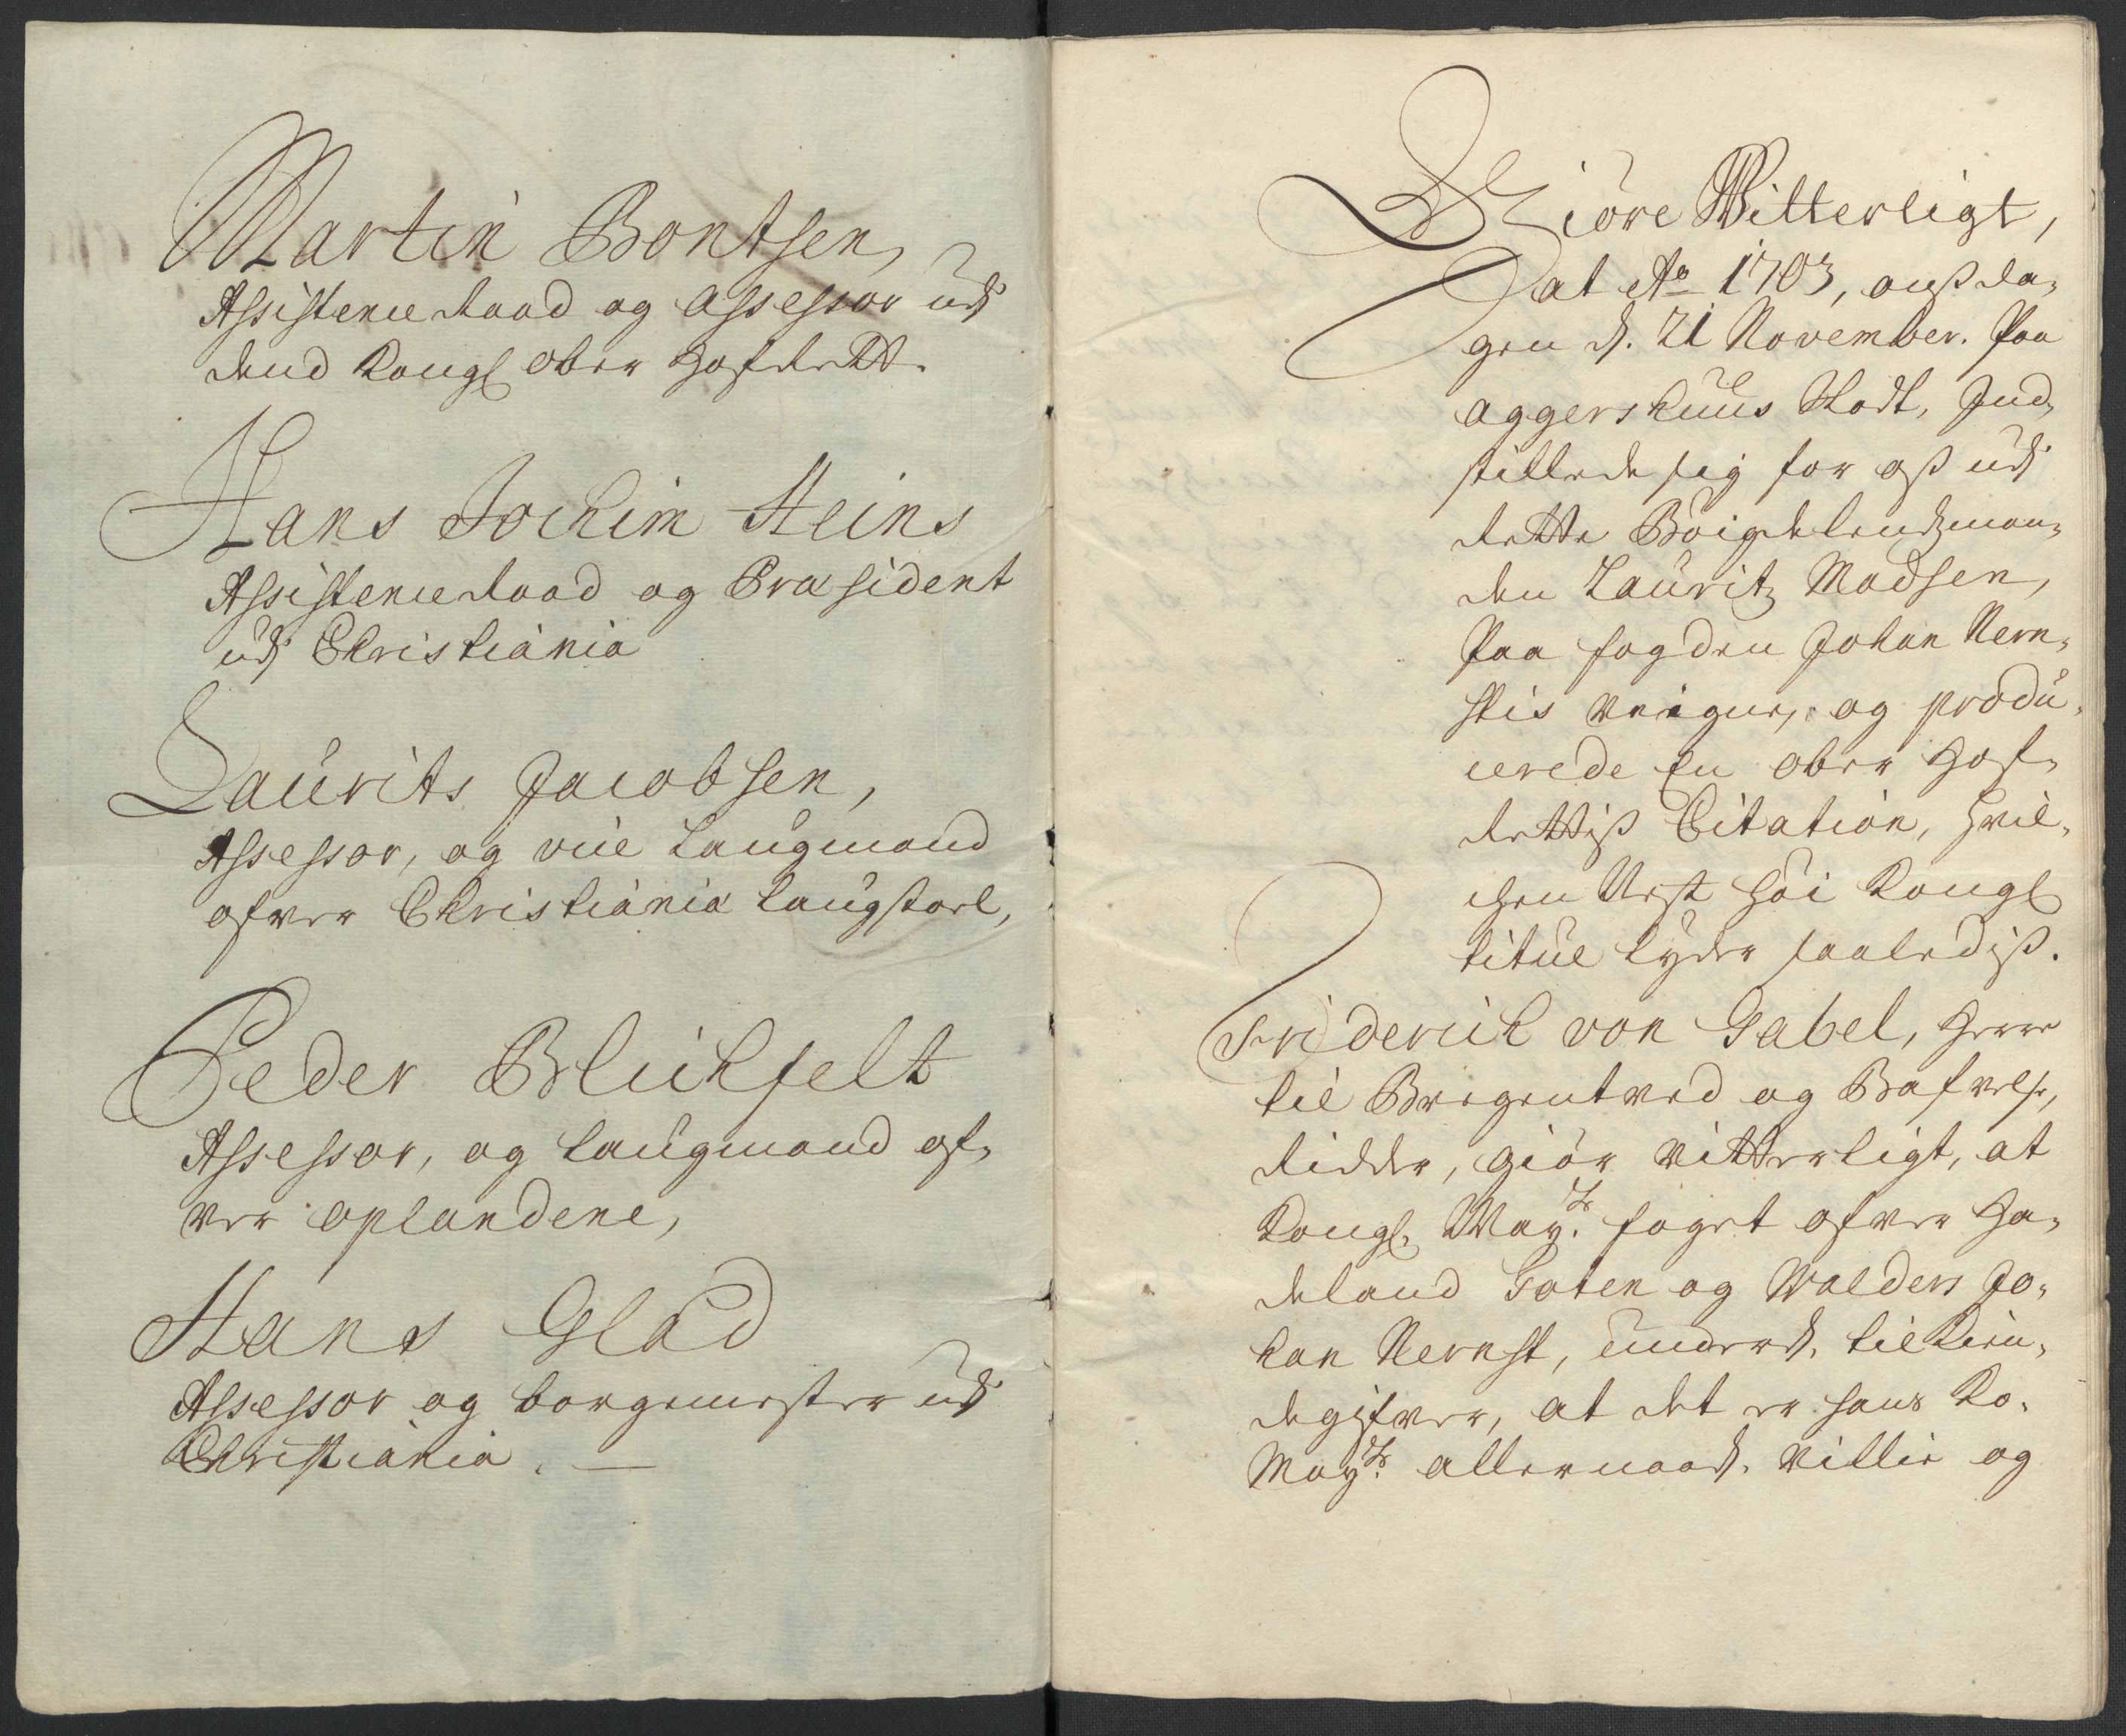 Martin Bontsen,
Assistence Raad og Assessor udj
dend Kongl Ober Hofdrett.
Hans Jochim Steins
Assistence Raad og Præsident
udj Christiania
Laurits Jacobsen,
Assessor, og vice Laugmand
ofver Christiania Laugstoel,
Peder Blichfelt
Assessor, og Laugmand of,
ver Oplandene,
Hans Glad
Assessor og borgemester udj
Christiania. —
Giöre Witterligt,
Dat Ao 1703, onsda,
gen d. 21 November. Paa
Aggershuus Slodt, Ind,
stillede sig for oss udj
Rette Böigdelendzman,
den Lauritz Madsen,
Paa fogden Johan Nern,
stis veigne, og produ,
cerede En Ober Hof,
Rettiss Citation, hvil,
chen Nest höi Kongl
titul lyder saalediss.
Friderich von Gabel, Herre
til Bregentved og Bafvelse,
Ridder, giör vitterligt, at
Kongl. Mayts. foget ofver Ha,
deland Toten og Walders Jo,
han Nernst, underd. tilkien,
degifver, at det er hans Ko.
Mayts. allernaad. villie og